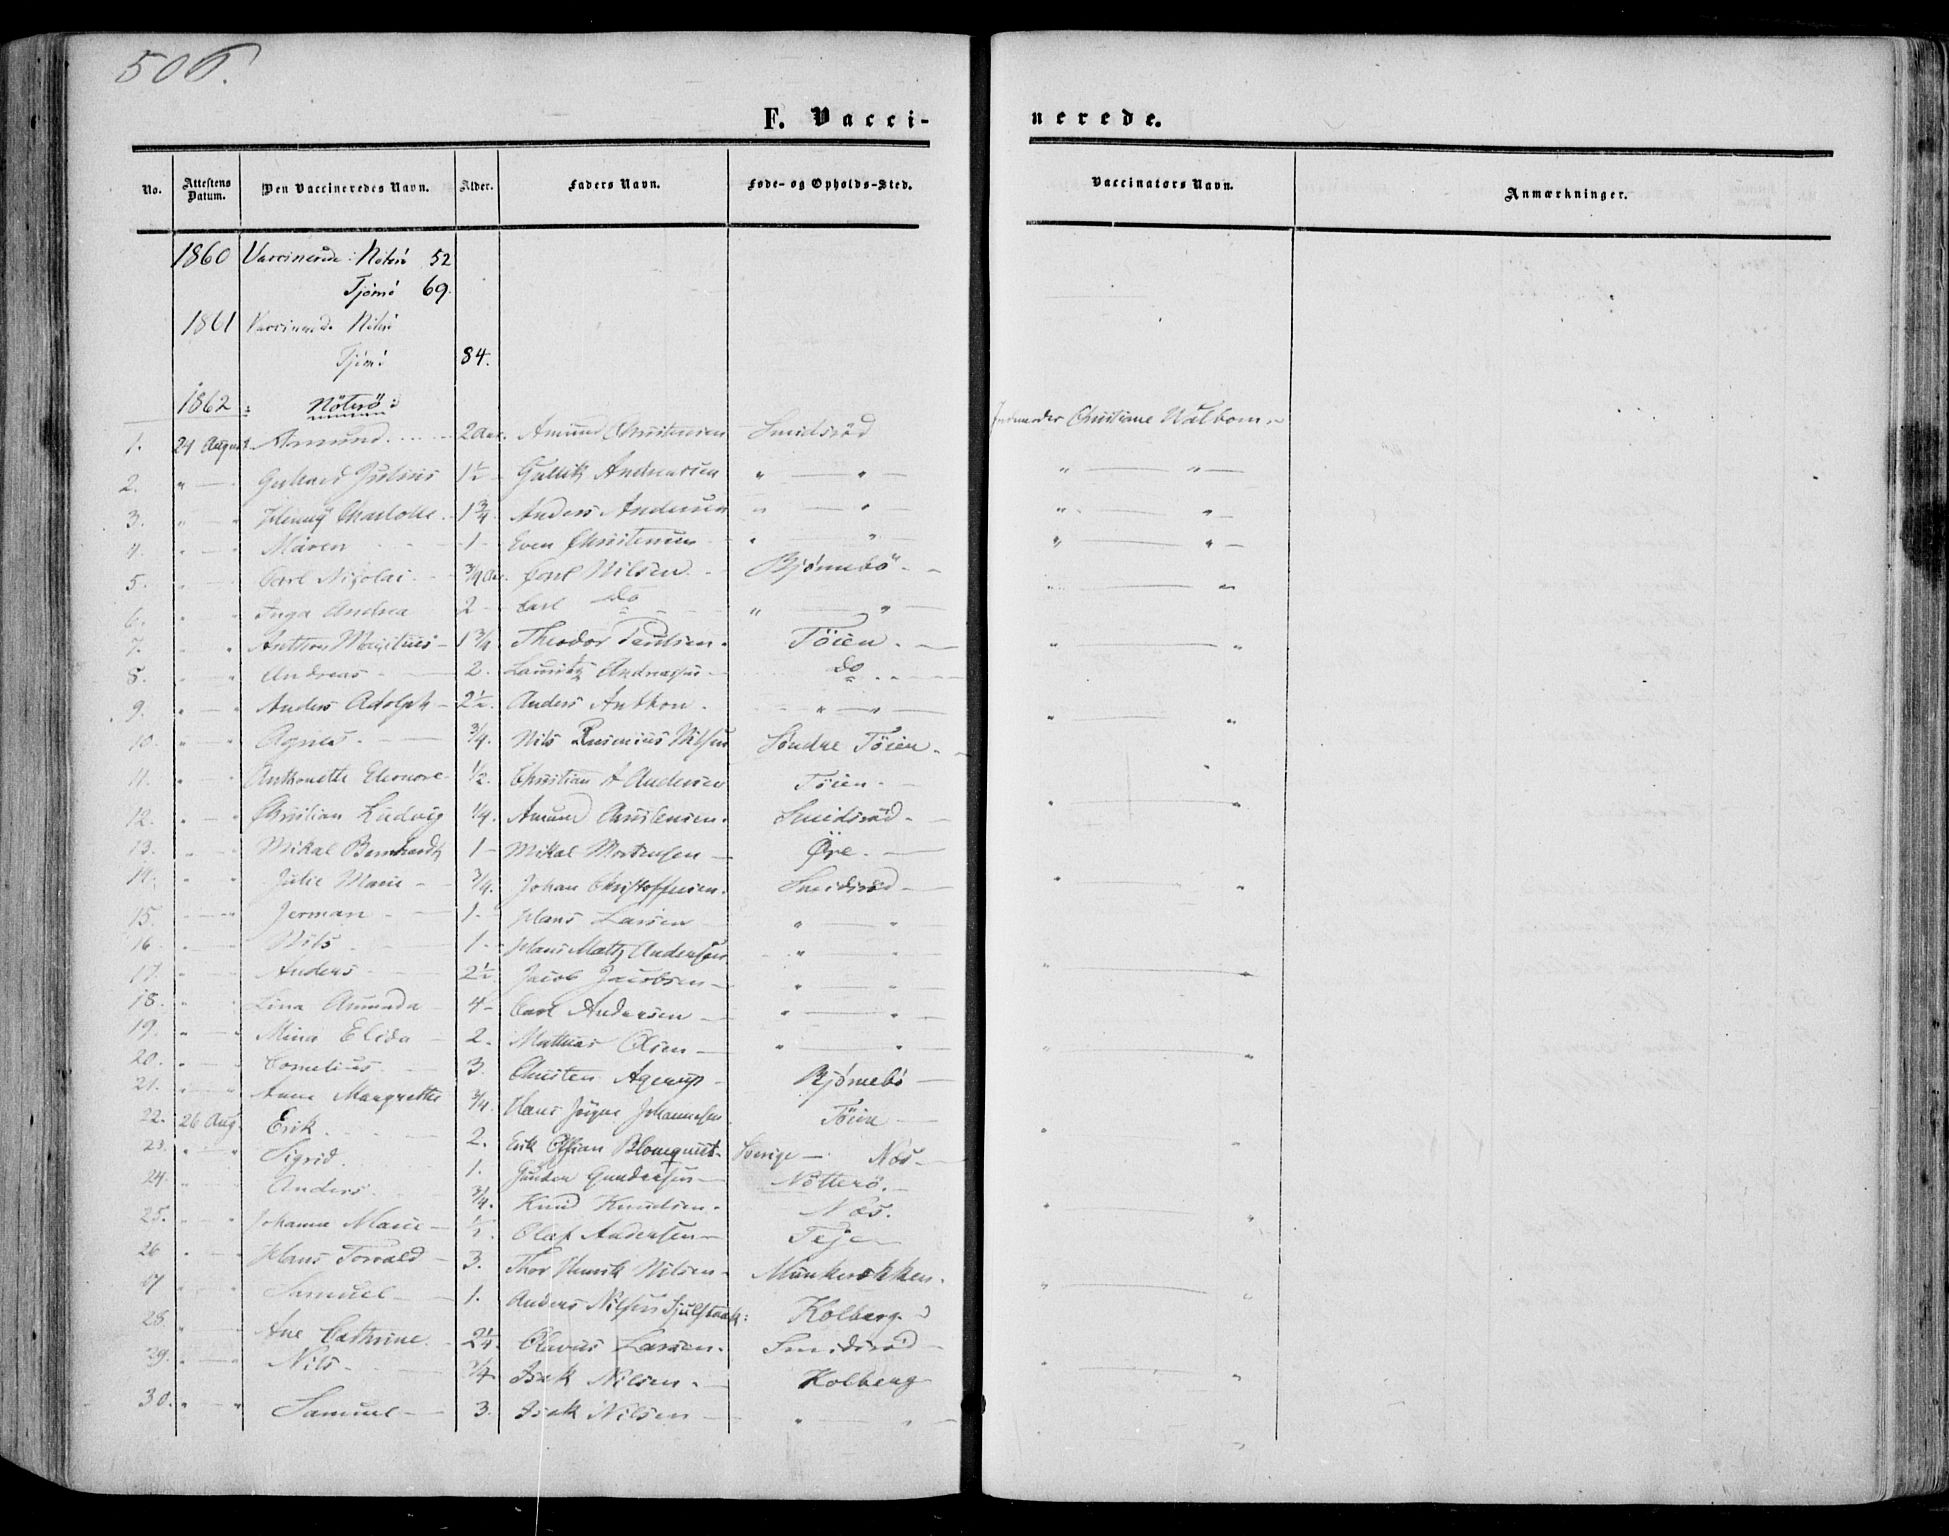 506.
F. Vacci-
nerede.
No. Attestens Datum. Den Vaccineredes Navn. Alder. Faders Navn. Føde- og Opholds-Sted. Vaccinators Navn. Anmærkninger.
1860 Vaccinerede: Nøterø 52
Tjømø 69.
1861 Vaccinerede Nøterø
Tjømø 84.
1862: Nöterö:
1. 24 August Amund 2 Aar. Amund Christensen Smidsröd Christiane Walbom
2. " — Gerhard Julius 1½ Gullik Andreasen " — "
3. " — " Henny Charlotte. 1¾ Anders Andersen " — "
4. " — " Maren 1 Even Christensen " "
5. " — Carl Nicolai ¾ Aar. Carl Nilsen Bjørnebö
6. " Inga Andrea 2 Carl do " — "
7. " " Anthon 1¾ Theodor Paulsen. Töien.
8. " " Andreas 2. Lauritz Andreasen do
9. " — " Anders Adolph 2½. Anders Anthon. " — "
10. " — " Agnes ¾. Nils Rusenius Nilsen Søndre Töien.
11. " — Anthonette Eleonore ½. Christian A Andersen Töien
12. " — " Christian Ludvig ¼. Amund Christensen. Smidsröd
13. " " Mikal Bernhardt 1 Mikal Mortensen Øre.
14. " " Julie Marie ¾. Johan Christoffersen. Smidsröd
15. — " Jerman 1. Hans Larsen " "
16 " — Nils 1 Hans Mathz Andersen "
17. " — Anders 2½. Jacob Jacobsen " — "
18. " Lina Amanda 4 Carl Andersen " — "
19. " — " Mina Elida 2. Mathias Olsen " "
20. " — " Cornelius 3. Christen Agerup Bjørnebö
21. " — " Anne Margrethe ¾. Hans Jörgen Johannesen Töien
22. 26 Aug. Erik 2. Erik Blomquist Sverige — Næs
23. " — " Sigrid 1. Gundersen Nötterö.
24. " — " Anders ¾. Knud Knudsen. Næs.
25. " — " Johanne Marie ½. Olaf Andersen Teje
26 " — " Hans Torvald 3. Thor Henrik Nilsen Munkerekken.
27 " " Samuel 1. Anders Nilsen Kolberg
28. " — " Ane Cathrine. 2¼. Olavus Larsen. Smidsröd
29. " — " Nils ¾ Isak Nilsen. Kolberg
30. " — " Samuel 3. Isak Nilsen " — "